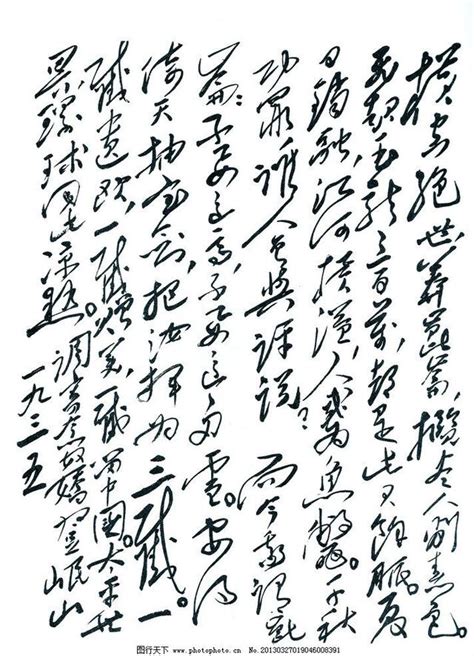 横空绝世,莽崑崙,搅尽人间春色。
飞起玉龙三百万,都是此君餘脈。夏
日銷融,江河横溢,人或为魚鱉。千秋
功罪,谁人曾與評説?而今我谓崑
崙:不要这高,不要这多雪。安得
倚天抽宝剑,把汝挥为三截。一
截遗欧,一截赠美,一截留中國。太平世
界,環球同此凉熱。调寄念奴嬌 登岷山
一九三五
图行天下 www.photophoto.cn No.20130327019046008391